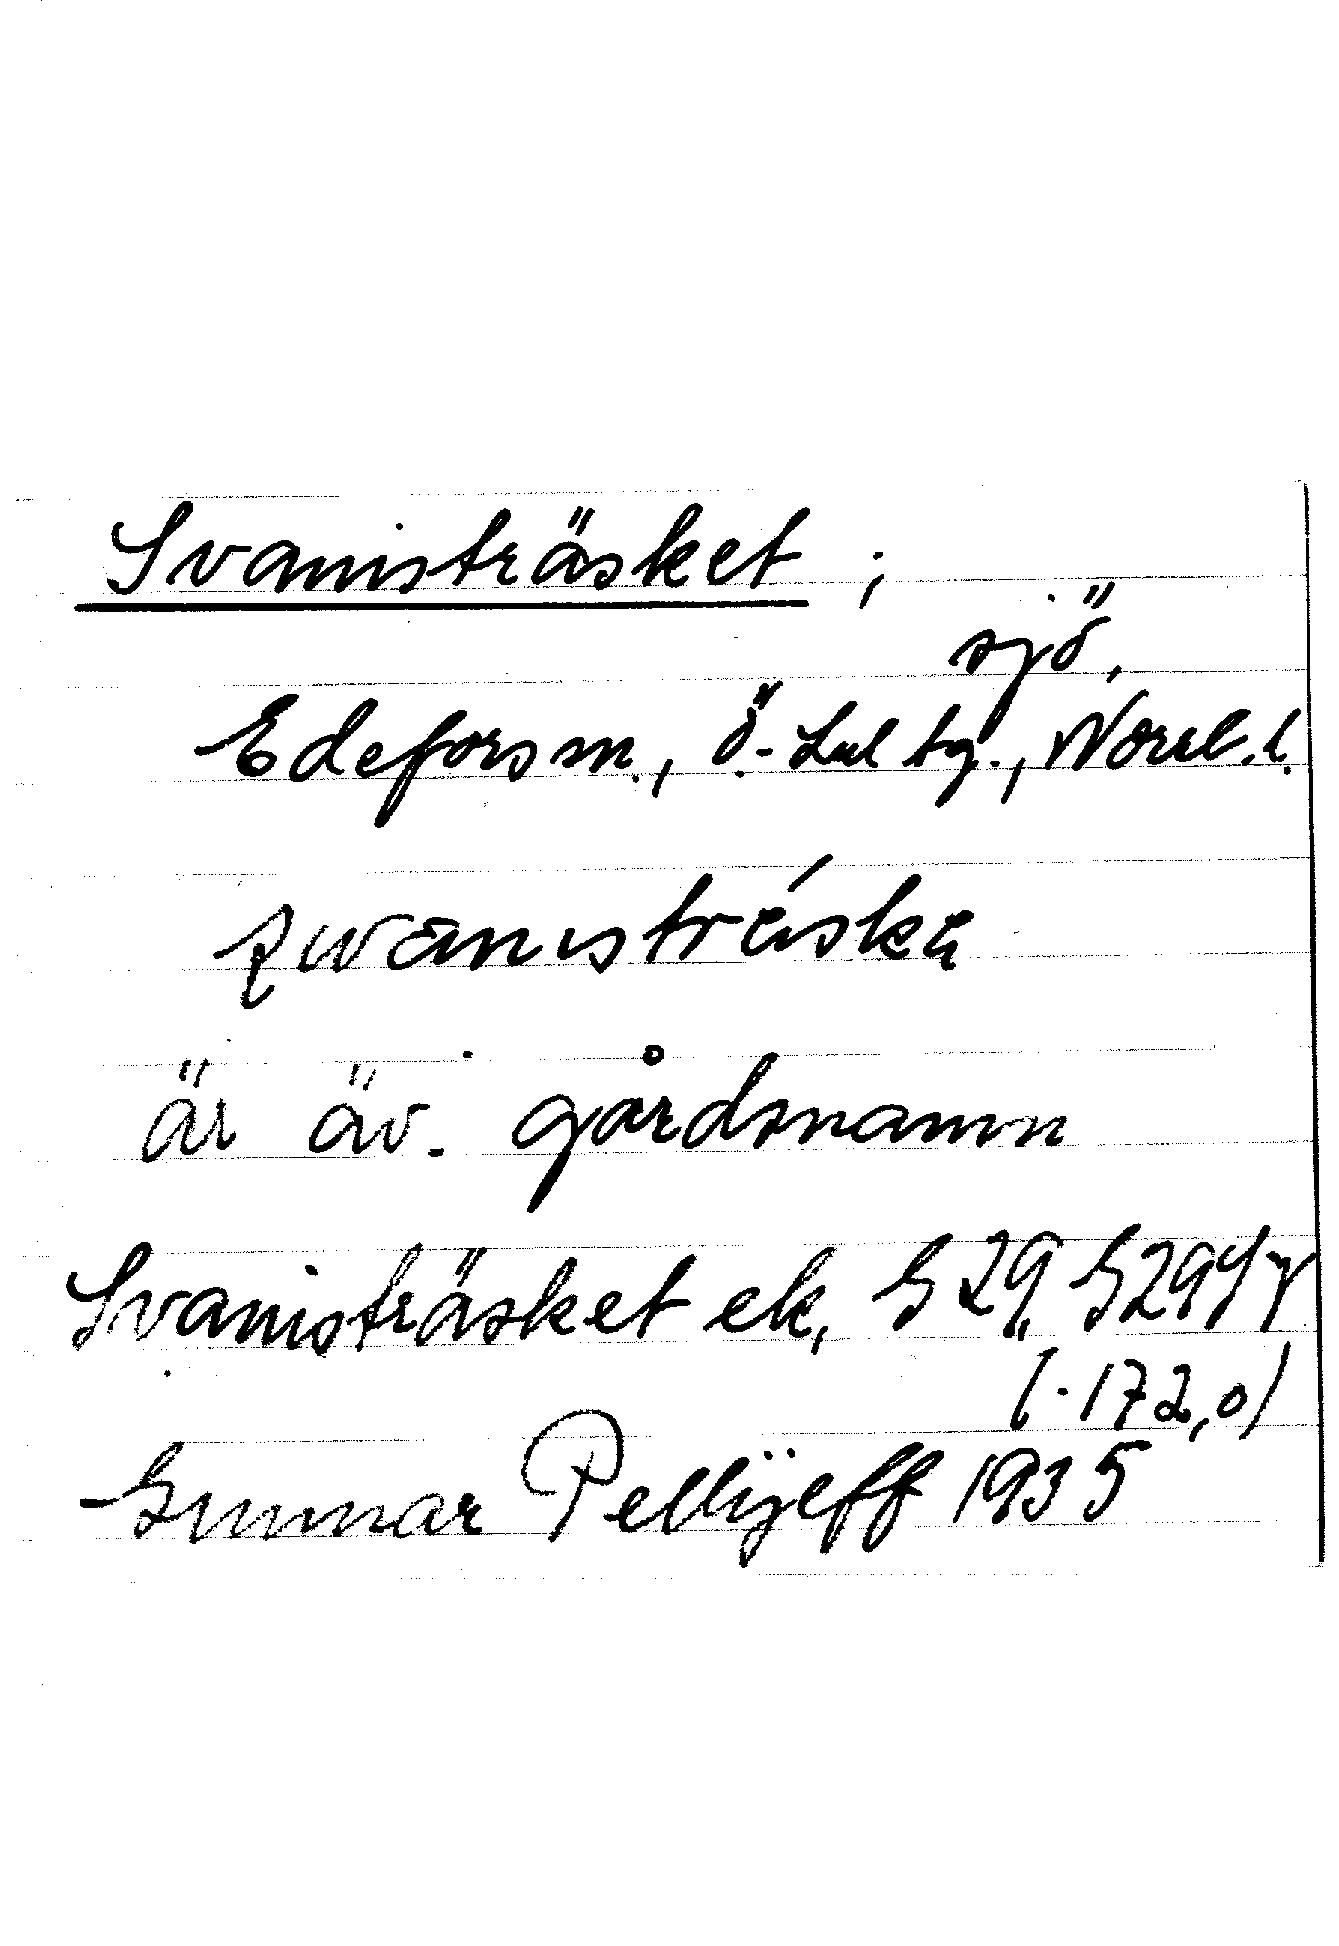 Svanisträsket ;
sjö,
Edefors sn., Ö. Lul tg., Norrb. l.
är äv. gårdsnamn
Svanisträsket ek, G 29,
(-172,0)
Gunnar Pellijeff 1935